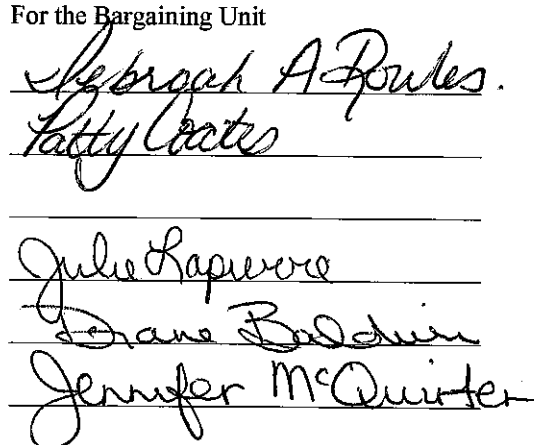 For the Bargaining Unit
Debroah A Rowles.
Patty Coates
Julie Lapierre
Diane Baldwin
Jennifer McQuirter